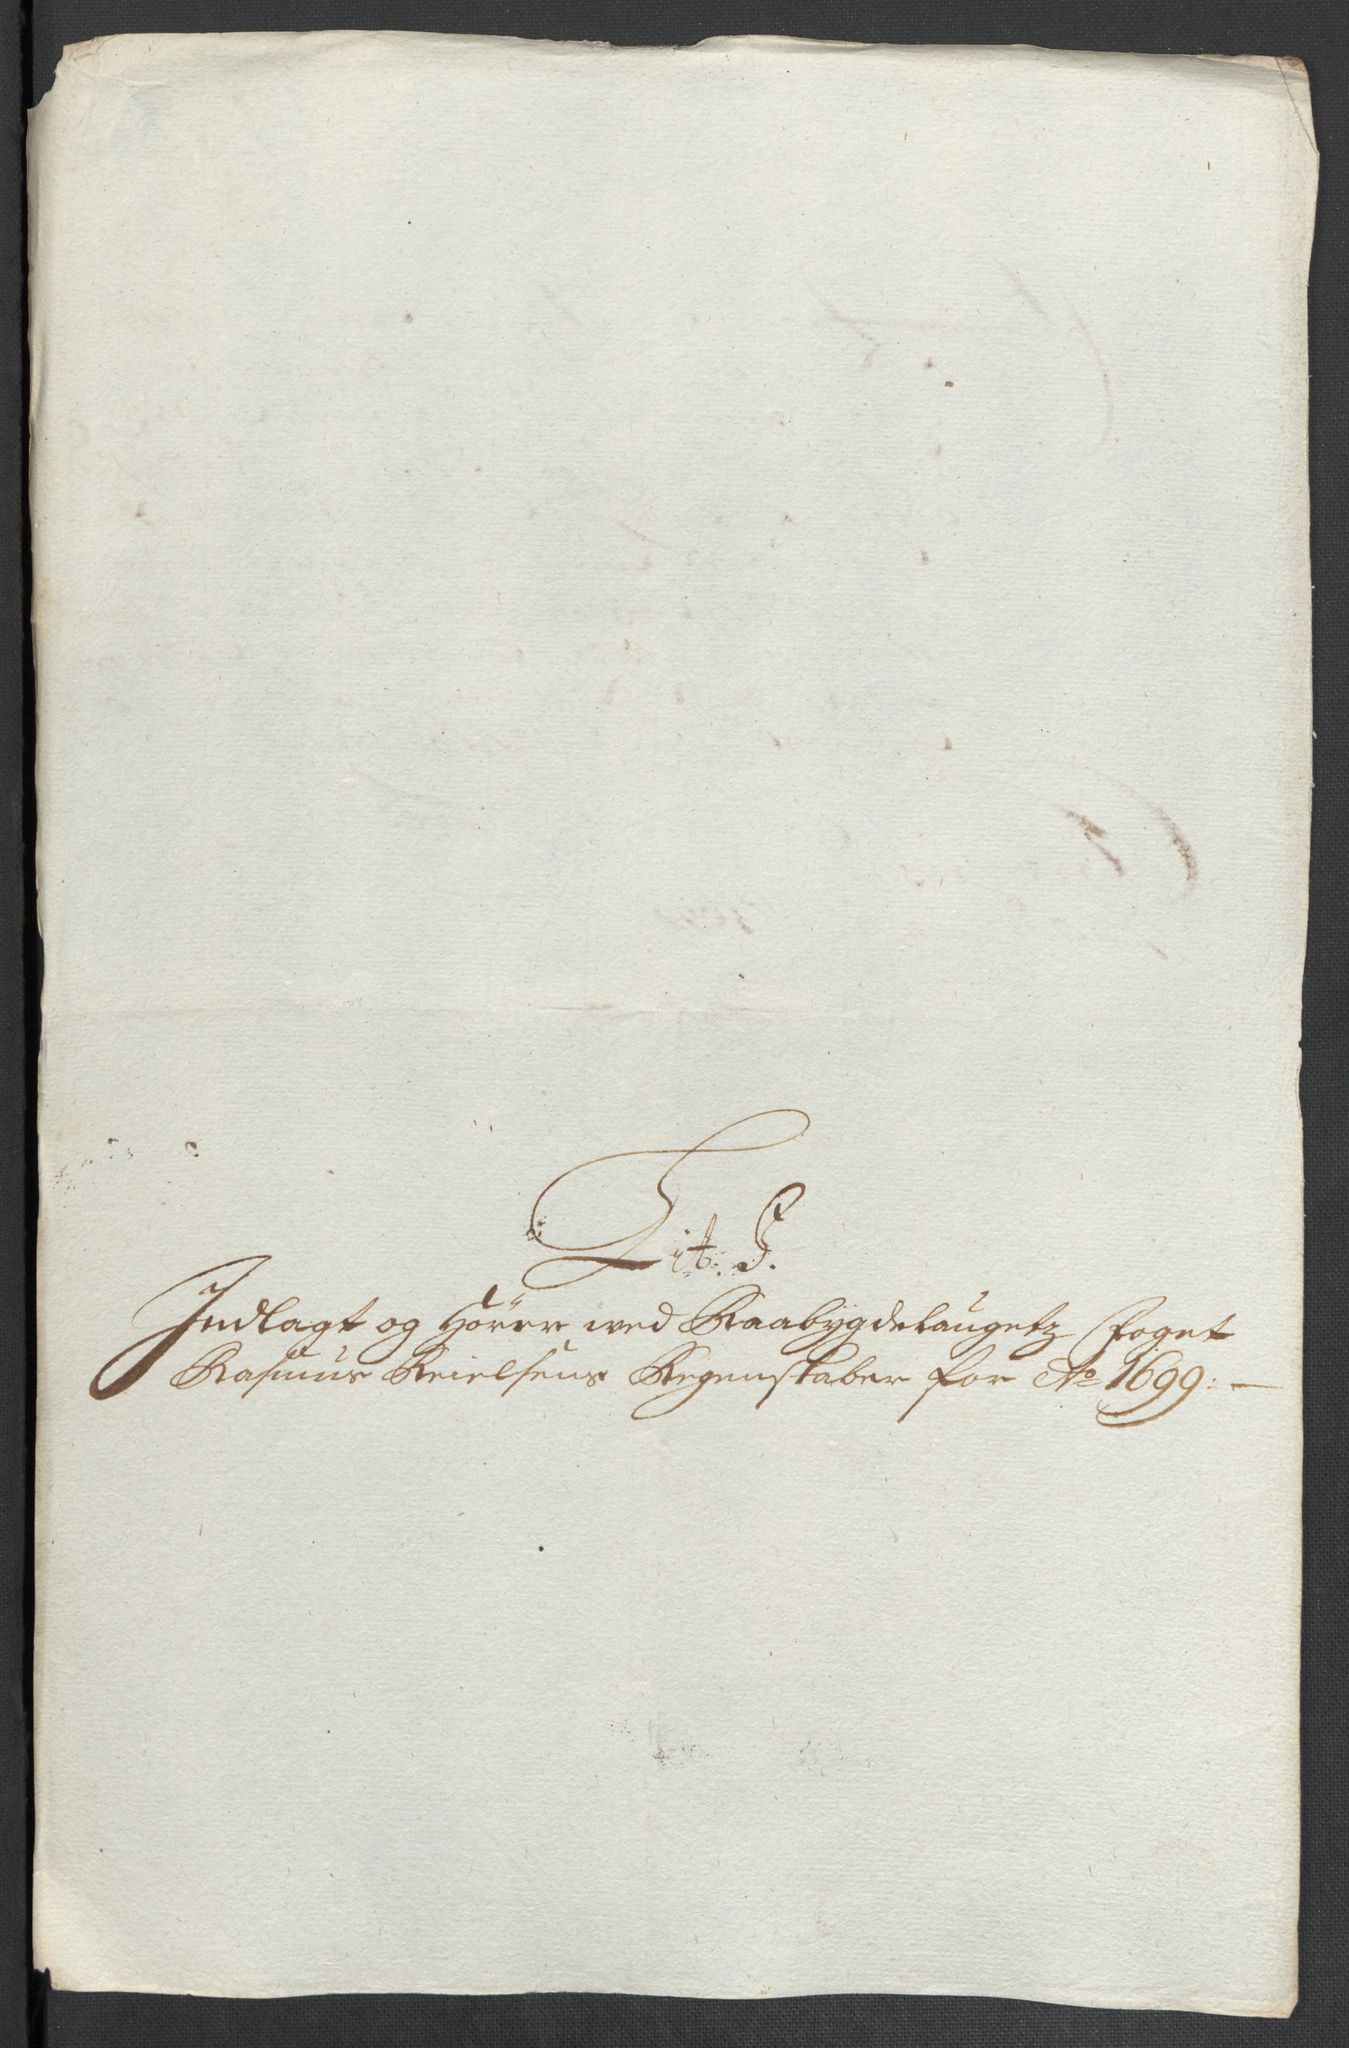 Lit. J.
Indlagt og Hörer wed Raabÿgdelaugetz Foget
Rasmus Keielsens Regenskaber for Ao 1699:—